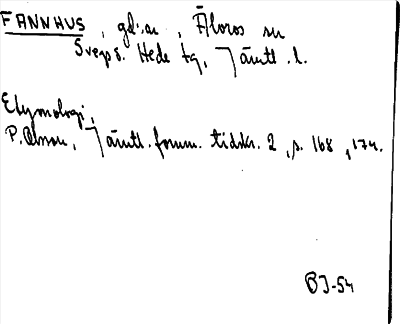 FANNHUS, gd:ar, Äloros sn
Svegs s. Hede tg, Jämtl. l.
Etymologi,
P. Olsson, Jämtl. fornm. tidskr. 2, s. 168, 174.
BJ-54